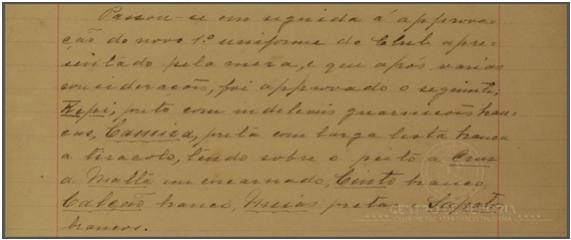 Passou-se em seguida á approva-
ção do novo 1º uniforme do Club apre-
sentado pela meza, e que após varias
considerações, foi approvado o seguinte;
Kepi, preto com indeleveis guarnicões bran-
cas, Camiza, preta com larga lista branca
a tiracolo, tendo sobre o peito a Cruz
de Malta em encarnado, Cinto branco,
Calção branco, Meias pretas e Sapatos
brancos.
CENTRO DE MEMÓRIA
CLUB DE REGATAS VASCO DA GAMA